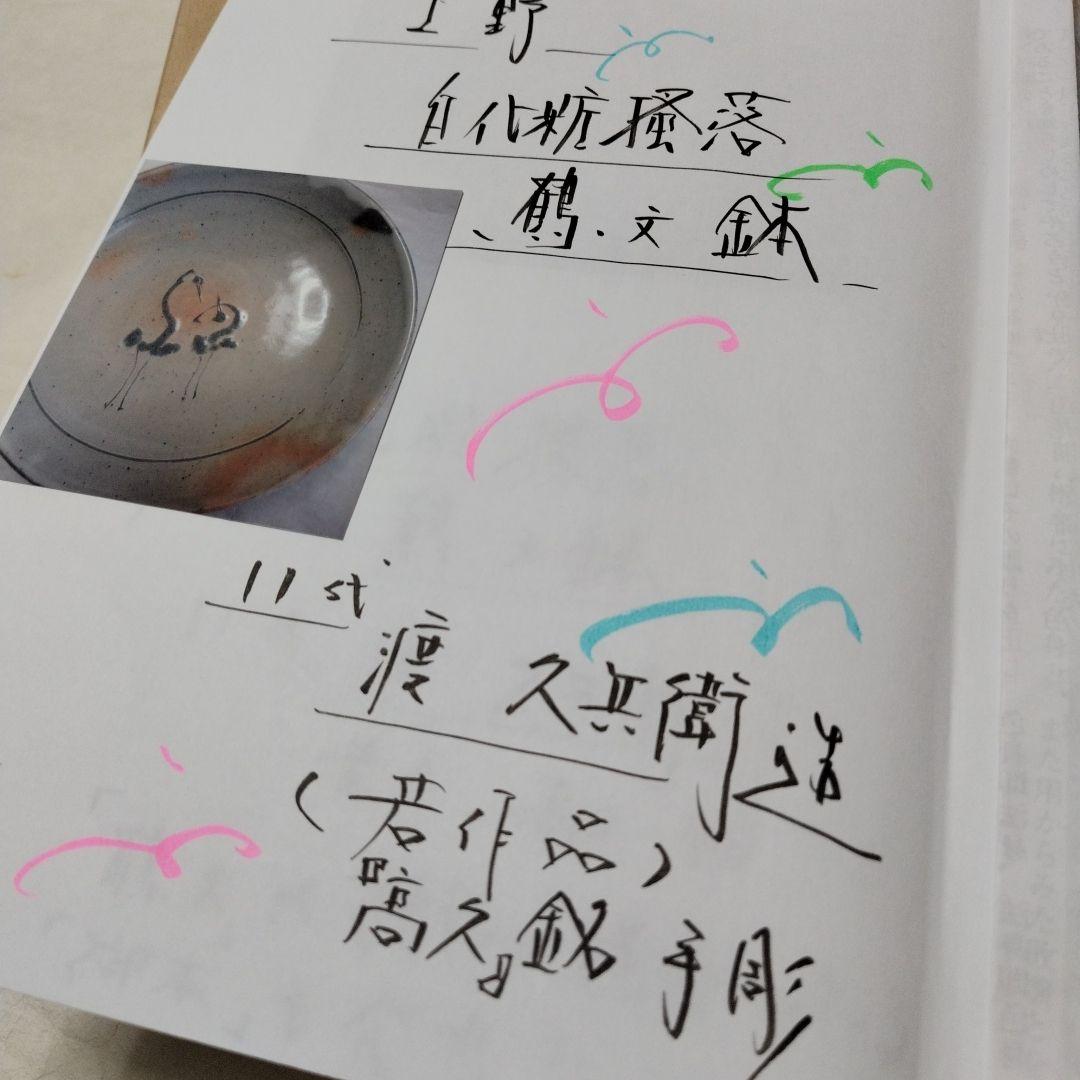 上野
白化粧掻落
、鶴・文 鉢
11st
渡 久兵衛 造
(若作品)
『高久』銘 手彫